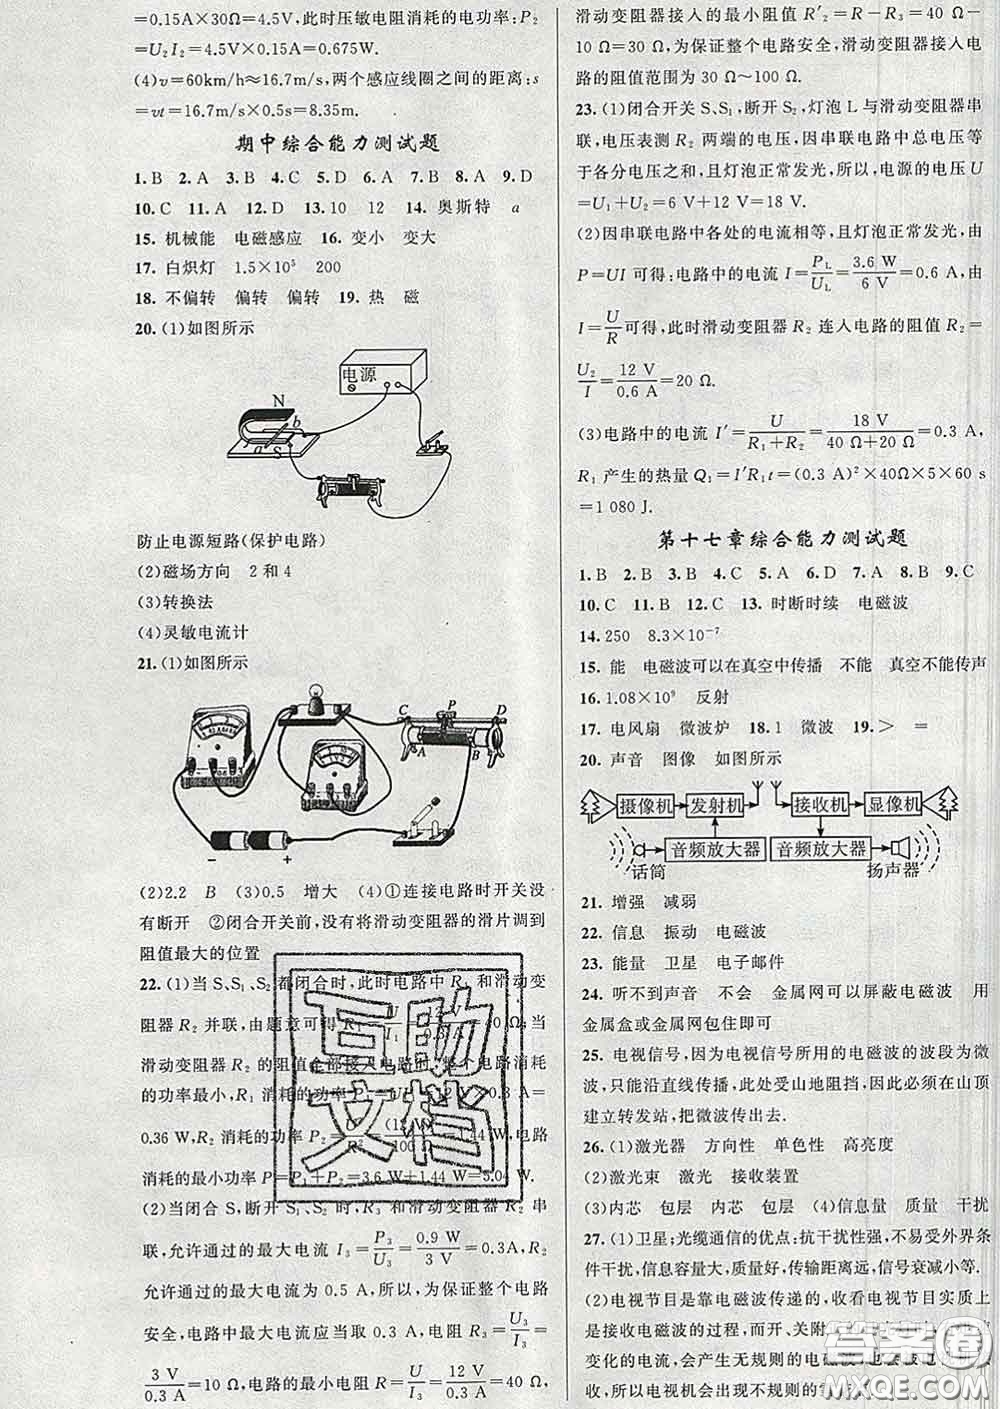 =0.15A×30Ω=4.5V,此时压敏电阻消耗的电功率:P₂
=U₂I₂=4.5V×0.15A=0.675W.
(4)v=60km/h≈16.7m/s,两个感应线圈之间的距离:s
=vt=16.7m/s×0.5s=8.35m.
期中综合能力测试题
1.B 2.A 3.B 4.C 5.D 6.A 7.B 8.A 9.D
10.C 11.A 12.D 13.10 12 14.奥斯特 a
15.机械能 电磁感应 16.变小 变大
17.白炽灯 1.5×10⁵ 200
18.不偏转 偏转 偏转 19.热 磁
20.(1)如图所示
电源
N
b
a
S
防止电源短路(保护电路)
(2)磁场方向 2和4
(3)转换法
(4)灵敏电流计
21.(1)如图所示
C P D
A B
− +
(2)2.2 B (3)0.5 增大 (4)①连接电路时开关没
有断开 ②闭合开关前,没有将滑动变阻器的滑片调到
阻值最大的位置
22.(1)当S、S₁、S₂都闭合时,此时电路中R₁和滑动变
阻器R₂并联,由题意可得R₁ 40Ω;当
滑动变阻器R₂的阻值全部接入电路时,整个电路消耗
的功率最小,R₁消耗的功率P₁=U₁I₁=12V×0.3A=
0.36 W,R₂消耗的功率P₂=U²/R²=(12V)²/100Ω=1.44W,电路
消耗的最小功率P=P₁+P₂=3.6 W+1.44 W=5.04 W.
(2)当闭合S,断开S₁、S₂时,R₃和滑动变阻器R₂串
联,允许通过的最大电流I₃=P₃/U₃=0.9 W/3 V=0.3A,R₂
允许通过的最大电流为0.5 A,所以,为保证整个电路
安全,电路中最大电流应当取0.3 A,电阻R₃=U₃/I₃=
3 V/0.3 A=10 Ω,电路的最小电阻R=U/I₃=12 V/0.3 A=40 Ω,
滑动变阻器接入的最小阻值R′₂=R−R₃=40 Ω−
10 Ω=30 Ω,为保证整个电路安全,滑动变阻器接入电
路的阻值范围为30 Ω～100 Ω.
23.(1)闭合开关S、S₁,断开S₂,灯泡L与滑动变阻器串
联,电压表测R₂两端的电压,因串联电路中总电压等
于各分电压之和,且灯泡正常发光,所以,电源的电压U
=U₁+U₂=6 V+12 V=18 V.
(2)因串联电路中各处的电流相等,且灯泡正常发光,由
P=UI可得:电路中的电流I=P_L/U_L=3.6 W/6 V=0.6 A,由
I=U/R可得,此时滑动变阻器R₂连入电路的阻值R₂=
U₂/I=12 V/0.6 A=20 Ω.
(3)电路中的电流I′=U/(R₁+R₂)=18 V/(40 Ω+20 Ω)=0.3 A,
R₁产生的热量Q₁=I′R₁t=(0.3 A)²×40Ω×5×60 s
=1 080 J.
第十七章综合能力测试题
1.B 2.B 3.B 4.C 5.A 6.D 7.A 8.B 9.C
10.C 11.B 12.C 13.时断时续 电磁波
14.250 8.3×10⁻⁷
15.能 电磁波可以在真空中传播 不能 真空不能传声
16.1.08×10⁹ 反射
17.电风扇 微波炉 18.1 微波 19.> =
20.声音 图像 如图所示
摄像机 发射机 接收机 显像机
音频放大器 音频放大器
话筒 扬声器
21.增强 减弱
22.信息 振动 电磁波
23.能量 卫星 电子邮件
24.听不到声音 不会 金属网可以屏蔽电磁波 用
金属盒或金属网包住即可
25.电视信号,因为电视信号所用的电磁波的波段为微
波,只能沿直线传播,此处受山地阻挡,因此必须在山顶
建立转发站,把微波传出去.
26.(1)激光器 方向性 单色性 高亮度
(2)激光束 激光 接收装置
(3)内芯 包层 内芯 包层 (4)信息量 质量 干扰
27.(1)卫星;光缆通信的优点:抗干扰性强,不易受外界条
件干扰,信息容量大,传输距离远,信号衰减小等.
(2)电视节目是靠电磁波传递的,收看电视节目实质上
是接收电磁波的过程,而开、关附
变化的电流,会产生无规则的电磁波,也会被电视机接
收,所以电视机会出现不规则的
互助
文档
答案圈
MXQE.COM